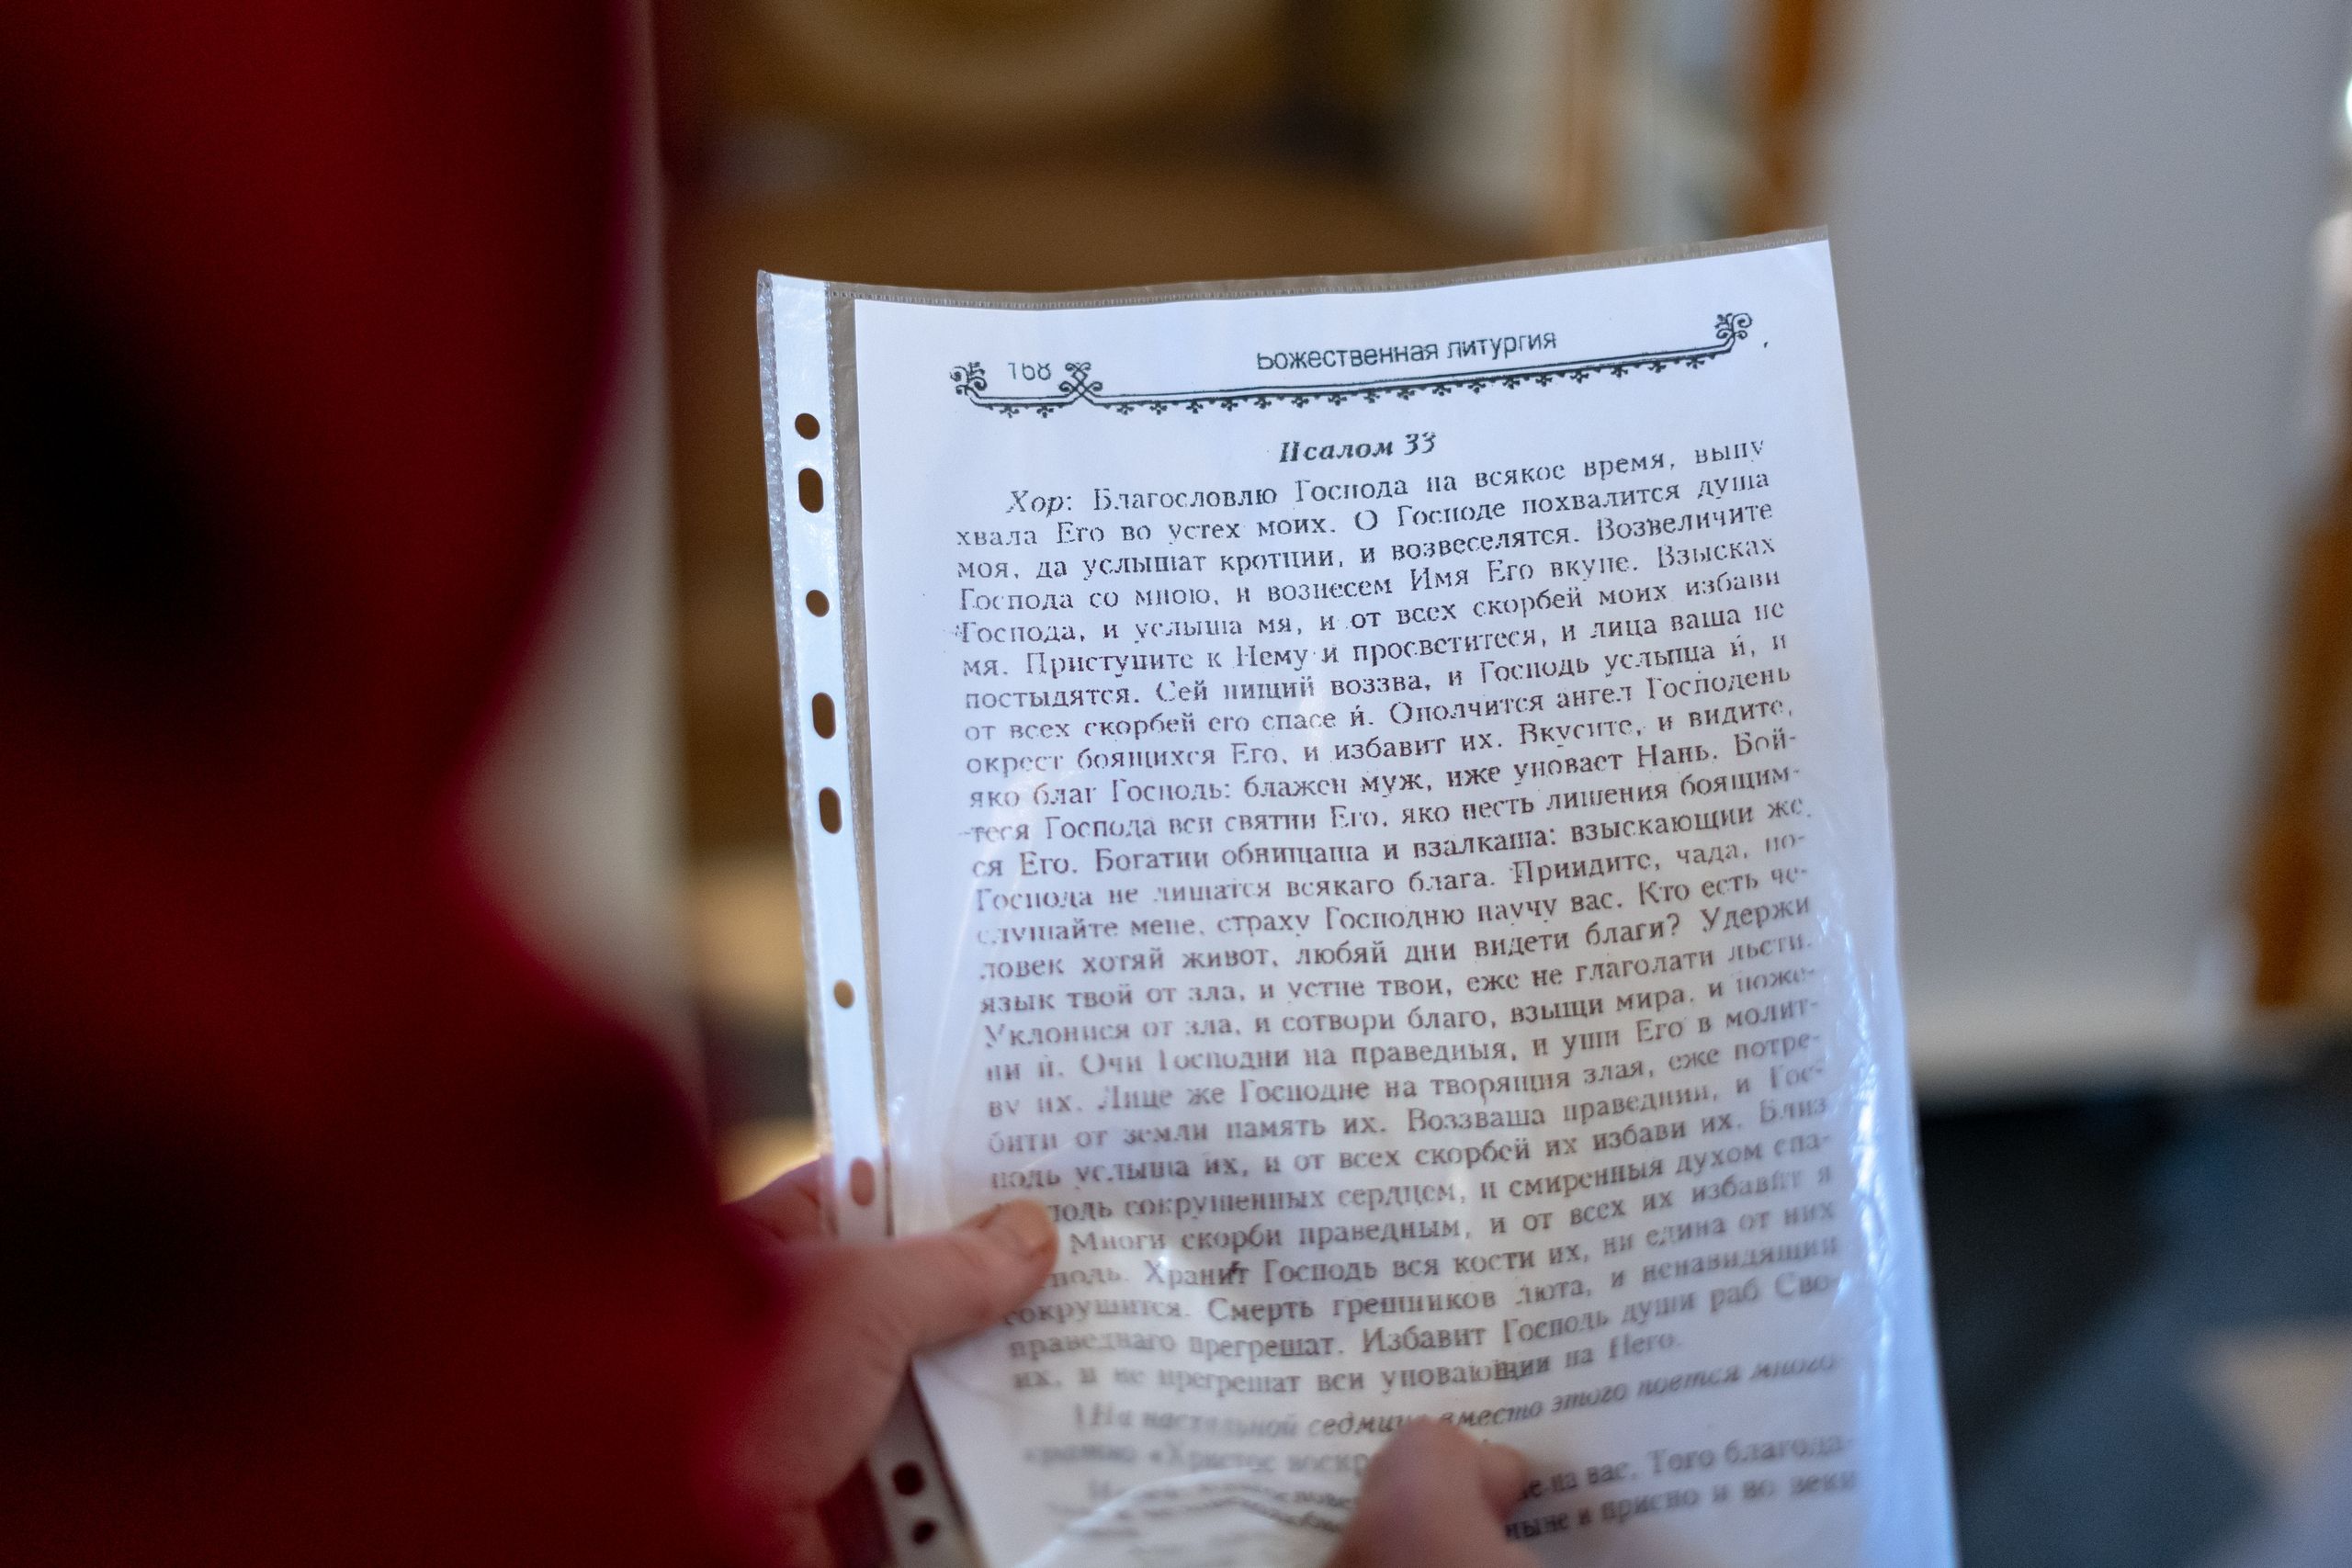 168
Божественная литургия
Псалом 33
Хор: Благословлю Господа на всякое время, выну
хвала Его во устех моих. О Господе похвалится душа
моя, да услышат кротции, и возвеселятся. Возвеличите
Господа со мною, и вознесем Имя Его вкупе. Взысках
Господа, и услыша мя, и от всех скорбей моих избави
мя. Приступите к Нему и просветитеся, и лица ваша не
постыдятся. Сей нищий воззва, и Господь услыша и́, и
от всех скорбей его спасе и́. Ополчится ангел Господень
окрест боящихся Его, и избавит их. Вкусите, и видите,
яко благ Господь: блажен муж, иже уповает Нань. Бой-
теся Господа вси святии Его, яко несть лишения боящим-
ся Его. Богатии обнищаша и взалкаша: взыскающии же
Господа не лишатся всякаго блага. Приидите, чада, по-
слушайте мене, страху Господню научу вас. Кто есть че-
ловек хотяй живот, любяй дни видети благи? Удержи
язык твой от зла, и устне твои, еже не глаголати льсти.
Уклонися от зла, и сотвори благо, взыщи мира, и поже-
ни и́. Очи Господни на праведныя, и уши Его в молит-
ву их. Лице же Господне на творящия злая, еже потре-
бити от земли память их. Воззваша праведнии, и Гос-
подь услыша их, и от всех скорбей их избави их. Близ
подь сокрушенных сердцем, и смиренныя духом спа-
Многи скорби праведным, и от всех их избавит я
подь. Хранит Господь вся кости их, ни едина от них
сокрушится. Смерть грешников люта, и ненавидящии
праведнаго прегрешат. Избавит Господь души раб Сво-
их, и не прегрешат вси уповающии на Него.
На седмице вместо этого поется много-
кратно «Христос
на вас. Того благода-
ныне и присно и во веки